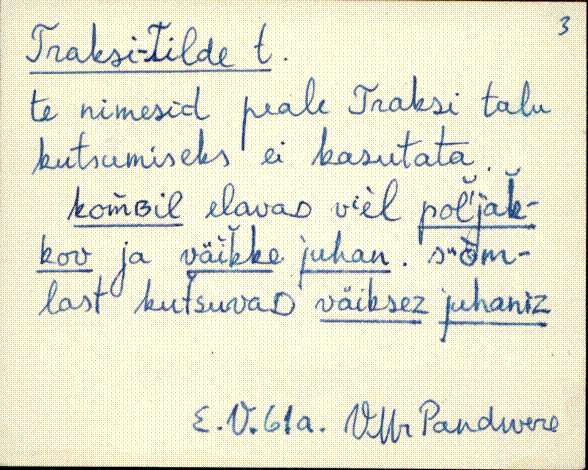 3
Traksi-Tilde t.
te nimesid peale Traksi talu
kutsumiseks ei kasutata.
kom̆ʙil elavaᴅ vièl pol̆'jak̆-
kov ja väik̆ke juhan. s
last kutsuvaᴅ väiksez juhaniz
E.V. 61a. VMr Pandivere